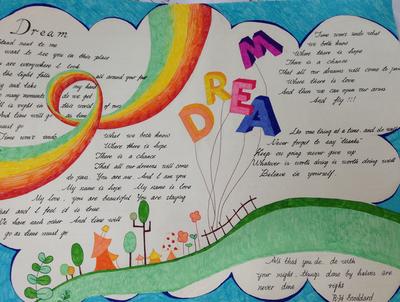 Dream
stand next to me
want to see you in this place
are everywhere I look
the light falls all around your fair
and take my hand
many moments do we get
is right in this world of our
And time will go as time
must go
Time won't undo
What we both know
Where there is hope
There is a chance
That all our dreams will come
to pass You are me And I am you
My name is hope My name is love
My love, you are beautiful You are staying
that and I feel it is true
We have each other And time will
go as time must go
DREAM
Time won't undo what
we both know
Where there is hope
There is a chance
That all our dreams will come to pass
Where there is love
And then we can open our arms
And fly !!!
Do one thing at a time, and do well
Never forget to say "thanks"
Keep on going never give up
Whatever is worth doing is worth doing well
Believe in yourself.
All that you do, do with
your might, things done by halves are
never done right
R.H. Stoddard